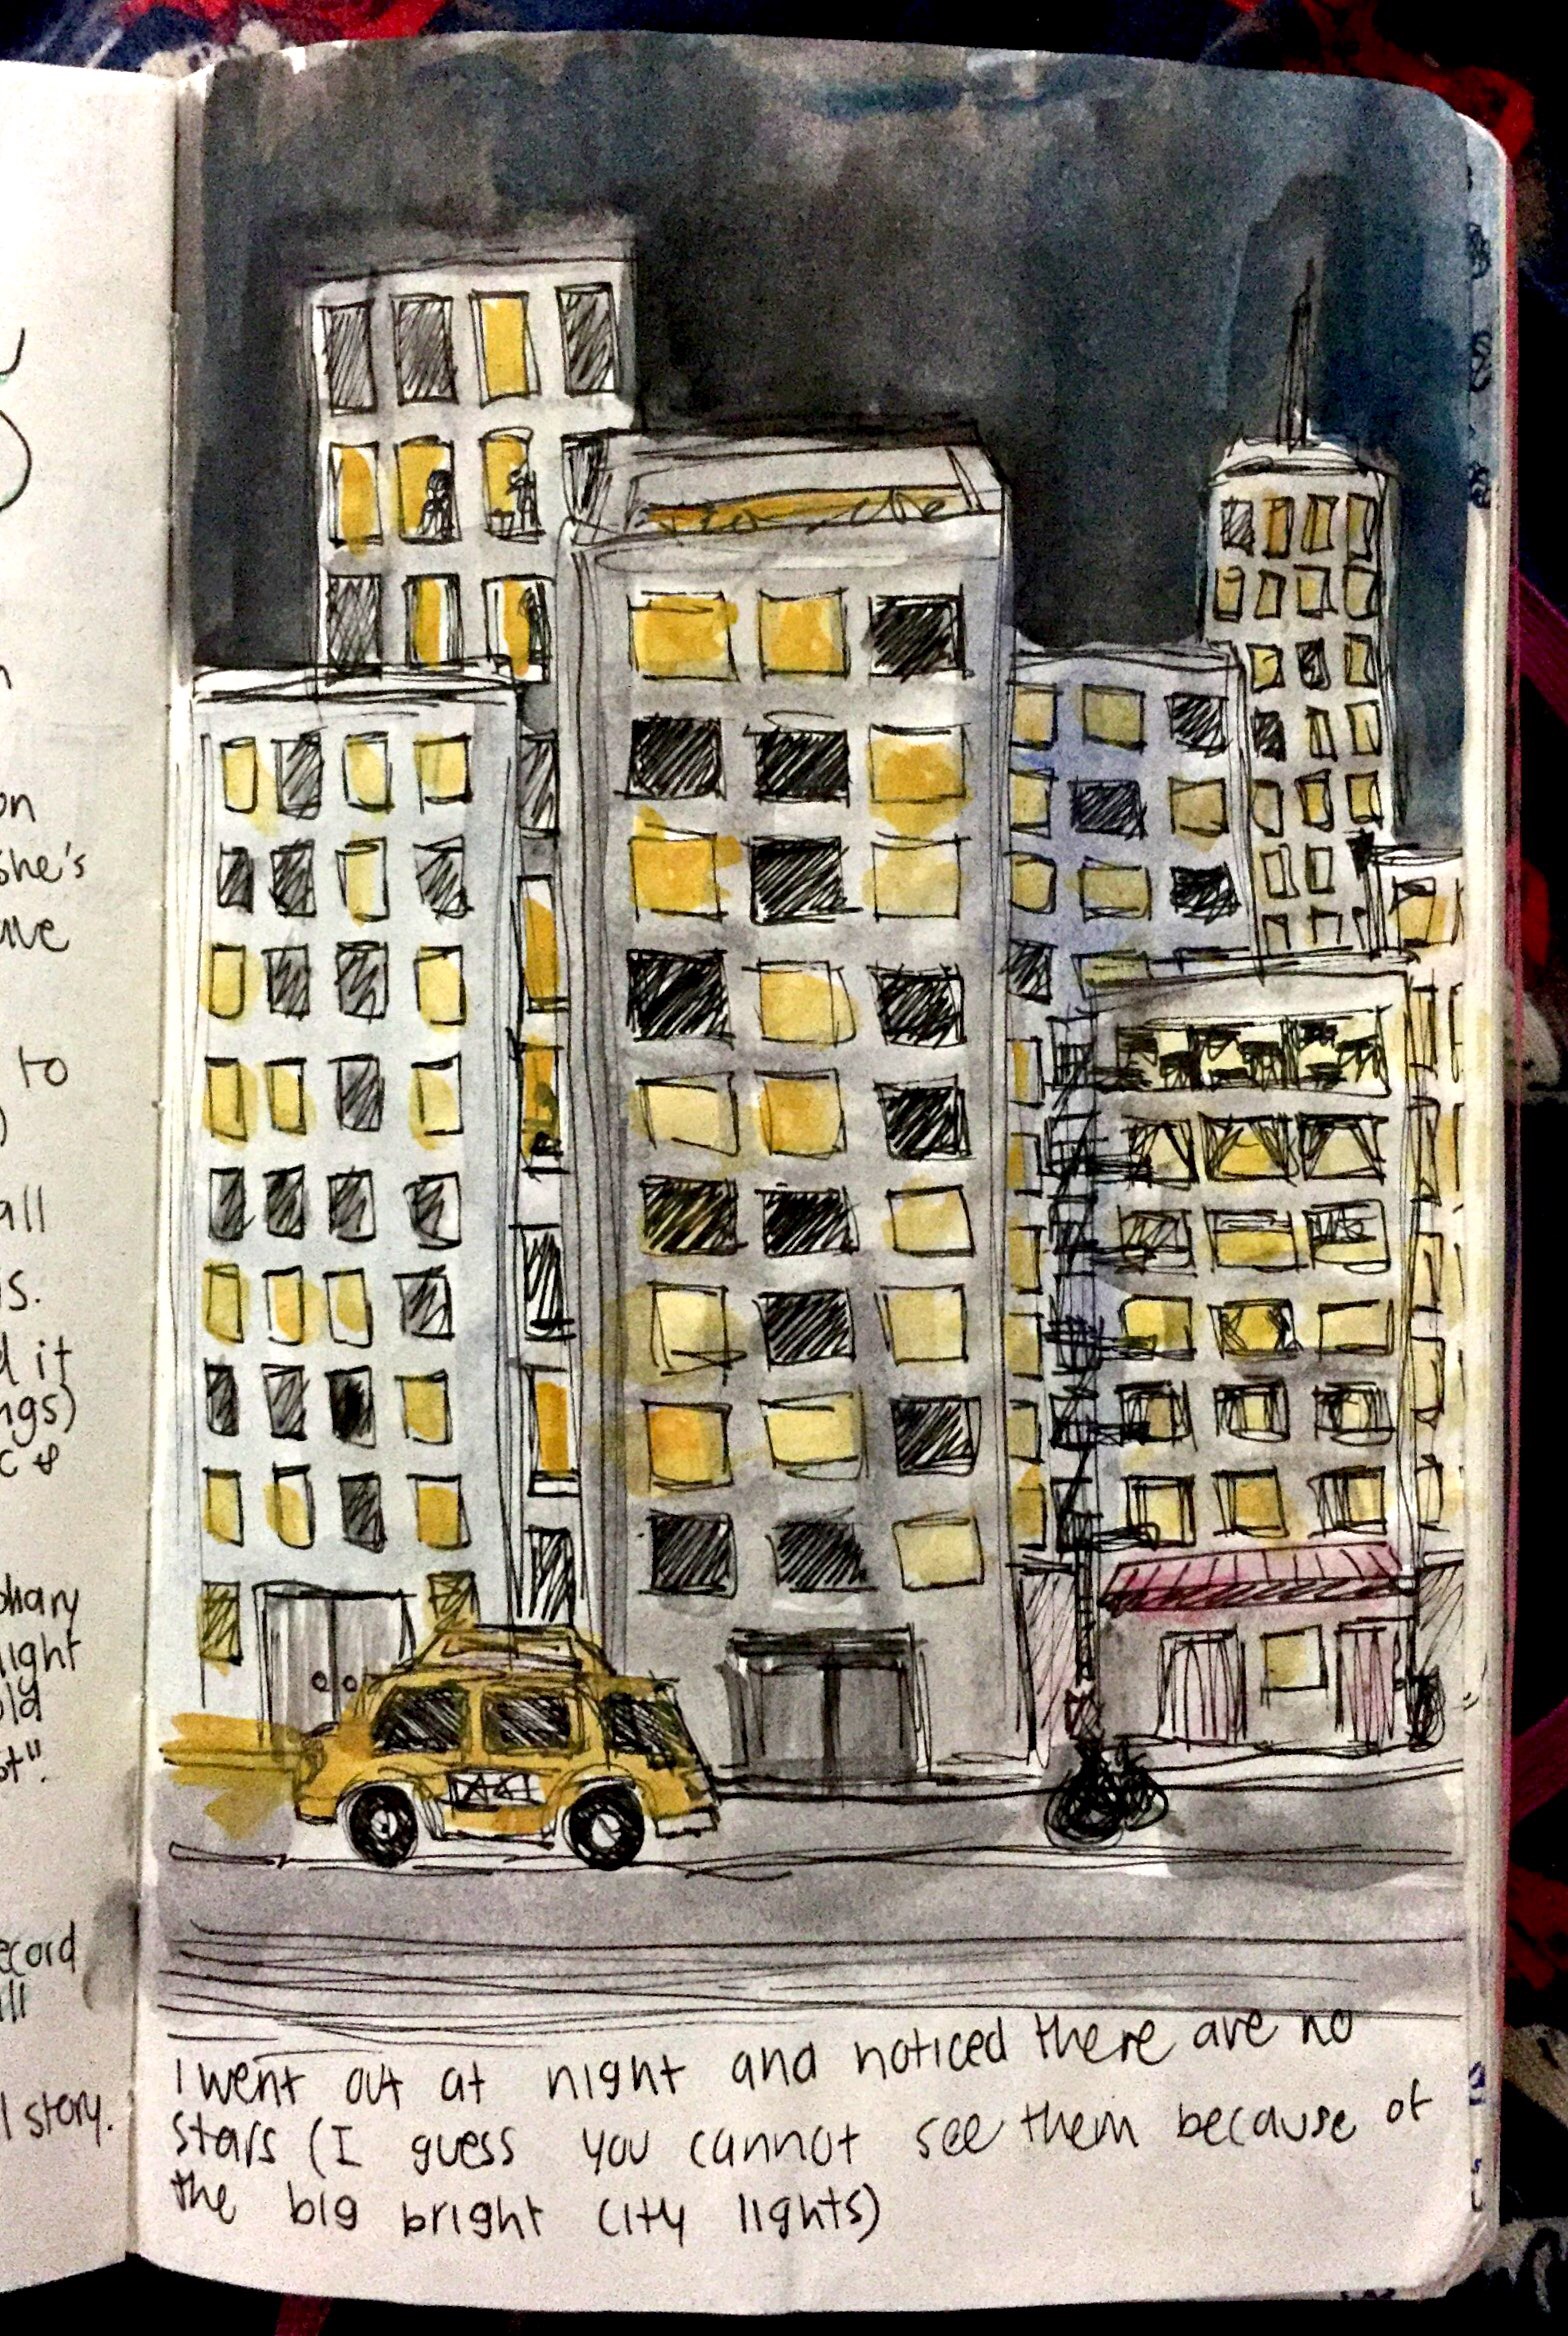 on
she's
ave
to
all
is.
d it
ngs)
light
old
ecord
ill
l story.
I went out at night and noticed there are no
stars (I guess you cannot see them because of
the big bright city lights)